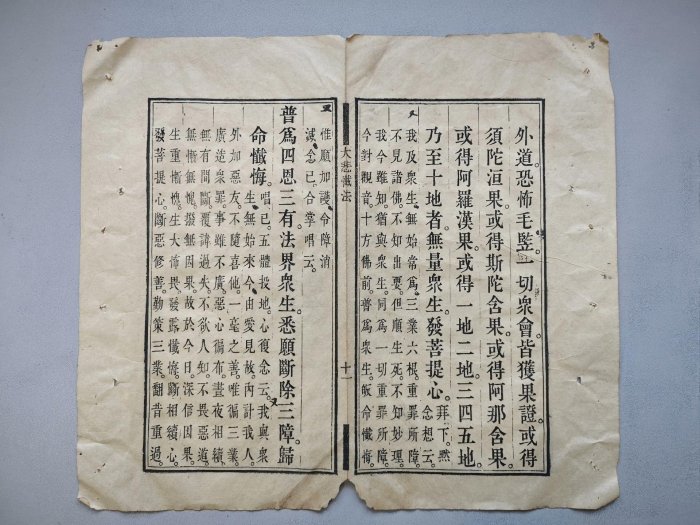 外道恐怖毛竪。一切衆會皆獲果證。或得
須陀洹果。或得斯陀含果。或得阿那含果。
或得阿羅漢果。或得一地二地三四五地。
乃至十地者。無量衆生。發菩提心。拜下。黙
念想云。
我及衆生。無始常爲。三業六根。重罪所障。
不見諸佛。不知出要。但順生死。不知妙理。
我今雖知。猶與衆生。同爲一切重罪所障。
今對觀音。十方佛前。普爲衆生。皈命懺悔。
大悲懺法
十一
惟願加護。令障消
滅。念已。合掌唱云。
普爲四恩三有。法界衆生。悉願斷除三障。歸
命懺悔。唱已。五體投地。心復念云。我與衆
生。無始來今。由愛見故。內計我人。
外加惡友。不隨喜他。一毫之善。唯徧三業。
廣造衆罪。事雖不廣。惡心徧布。晝夜相續。
無有間斷。覆諱過失。不欲人知。不畏惡道。
無慚無愧。撥無因果。故於今日。深信因果。
生重慚愧。生大怖畏。發露懺悔。斷相續心。
發菩提心。斷惡修善。勤策三業。翻昔重過。